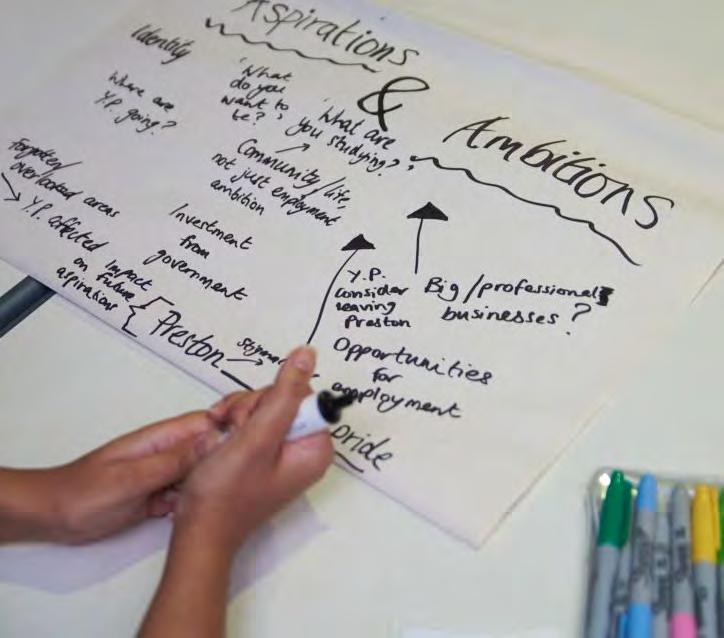 Aspirations
&
Ambitions
Identity
Where are
Y.P. going?
'What
do you
want to
be?'
'What are
you studying?'
Community/life,
not just employment
ambition
Forgotten/
overlooked areas
Y.P. affected
Investment
from
government
Impact
on future
aspirations
Preston
Y.P.
consider
leaving
Preston
Big/professional
businesses?
Opportunities
for
employment
pride